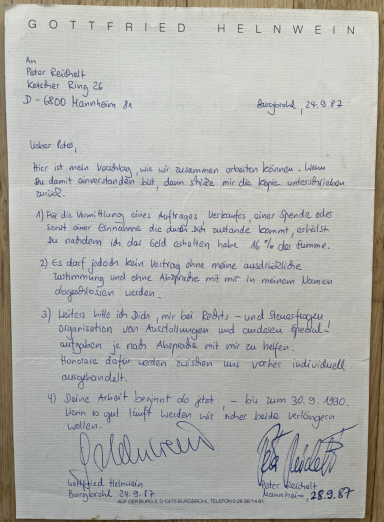 GOTTFRIED HELNWEIN
An
Peter Reichelt
Ketscher Ring 26
D - 6800 Mannheim 81
Burgbrohl, 24.9.87
Lieber Peter,
Hier ist mein Vorschlag, wie wir zusammen arbeiten können. Wenn
Du damit einverstanden bist, dann schicke mir die Kopie unterschrieben
zurück.
1) Für die Vermittlung eines Auftrages Verkaufes, einer Spende oder
sonst einer Einnahme die durch Dich zustande kommt, erhälst
Du nachdem ich das Geld erhalten habe 16 % der Summe.
2) Es darf jedoch kein Vertrag ohne meine ausdrückliche
Zustimmung und ohne Absprache mit mir in meinem Namen
abgeschlossen werden.
3) Weiters bitte ich Dich, mir bei Rechts - und Steuerfragen
organisation von Ausstellungen und anderen Spezial-
aufgaben je nach Absprache mit mir zu helfen.
Honorare dafür werden zwischen uns vorher individuell
ausgehandelt.
4) Deine Arbeit beginnt ab jetzt, - bis zum 30.9.1990.
Wenn es gut läuft werden wir sicher beide verlängern
wollen.
Gottfried Helnwein
Burgbrohl 24.9.87
Peter Reichelt
Mannheim, 28.9.87
AUF DER BURG 2, D-5475 BURGBROHL, TELEFON 0 26 36/14 81